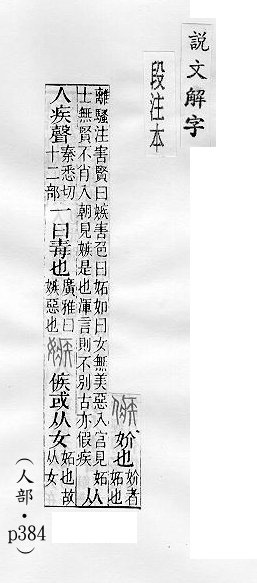 說文解字
段注本
㑵 妎也 妎者妬也
離騷注害賢曰嫉害色曰妬如曰女無美惡入宮見妬
士無賢不肖入朝見嫉是也渾言則不別古亦假疾 从
人疾聲 秦悉切十二部 一曰毒也 廣雅曰嫉惡也 嫉 㑵或从女 妬也故从女
(人部・p384)